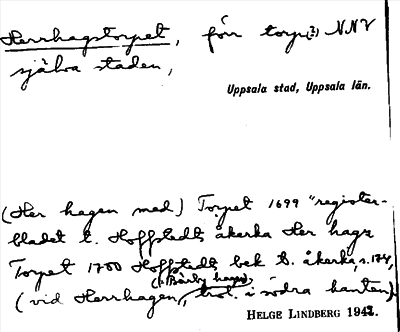 Herrhagstorpet, förr torp(?) NNV
själva staden,
Uppsala stad, Uppsala län.
(Her hagen med) Torpet 1699 "register-
bladet t. Hoffstedts åkerka Her hags
Torpet 1700 Hoffstedts bek t. åkerka, s. 174,
(i Bärby hage)
(vid Herrhagen, trol. i södra kanten)
HELGE LINDBERG 1942.